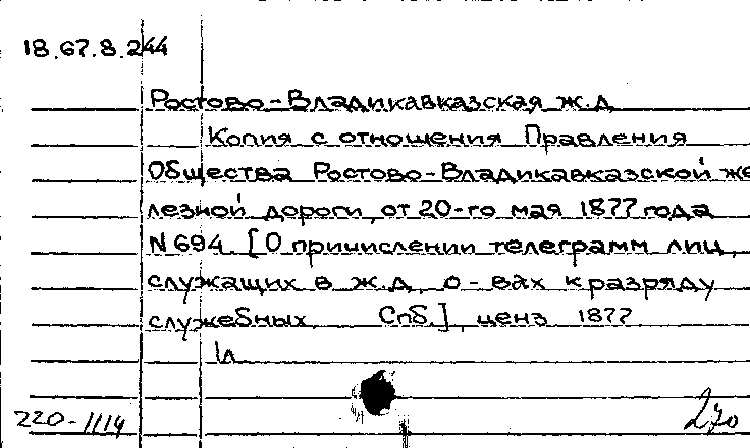 18.67.8.244
Ростово-Владикавказская ж.д.
Копия с отношения Правления
Общества Ростово-Владикавказской же
лезной дороги, от 20-го мая 1877 года
N 694. [О причислении телеграмм лиц,
служащих в ж.д. о-вах к разряду
служебных. Спб.], ценз. 1877.
1л.
220-1114
270